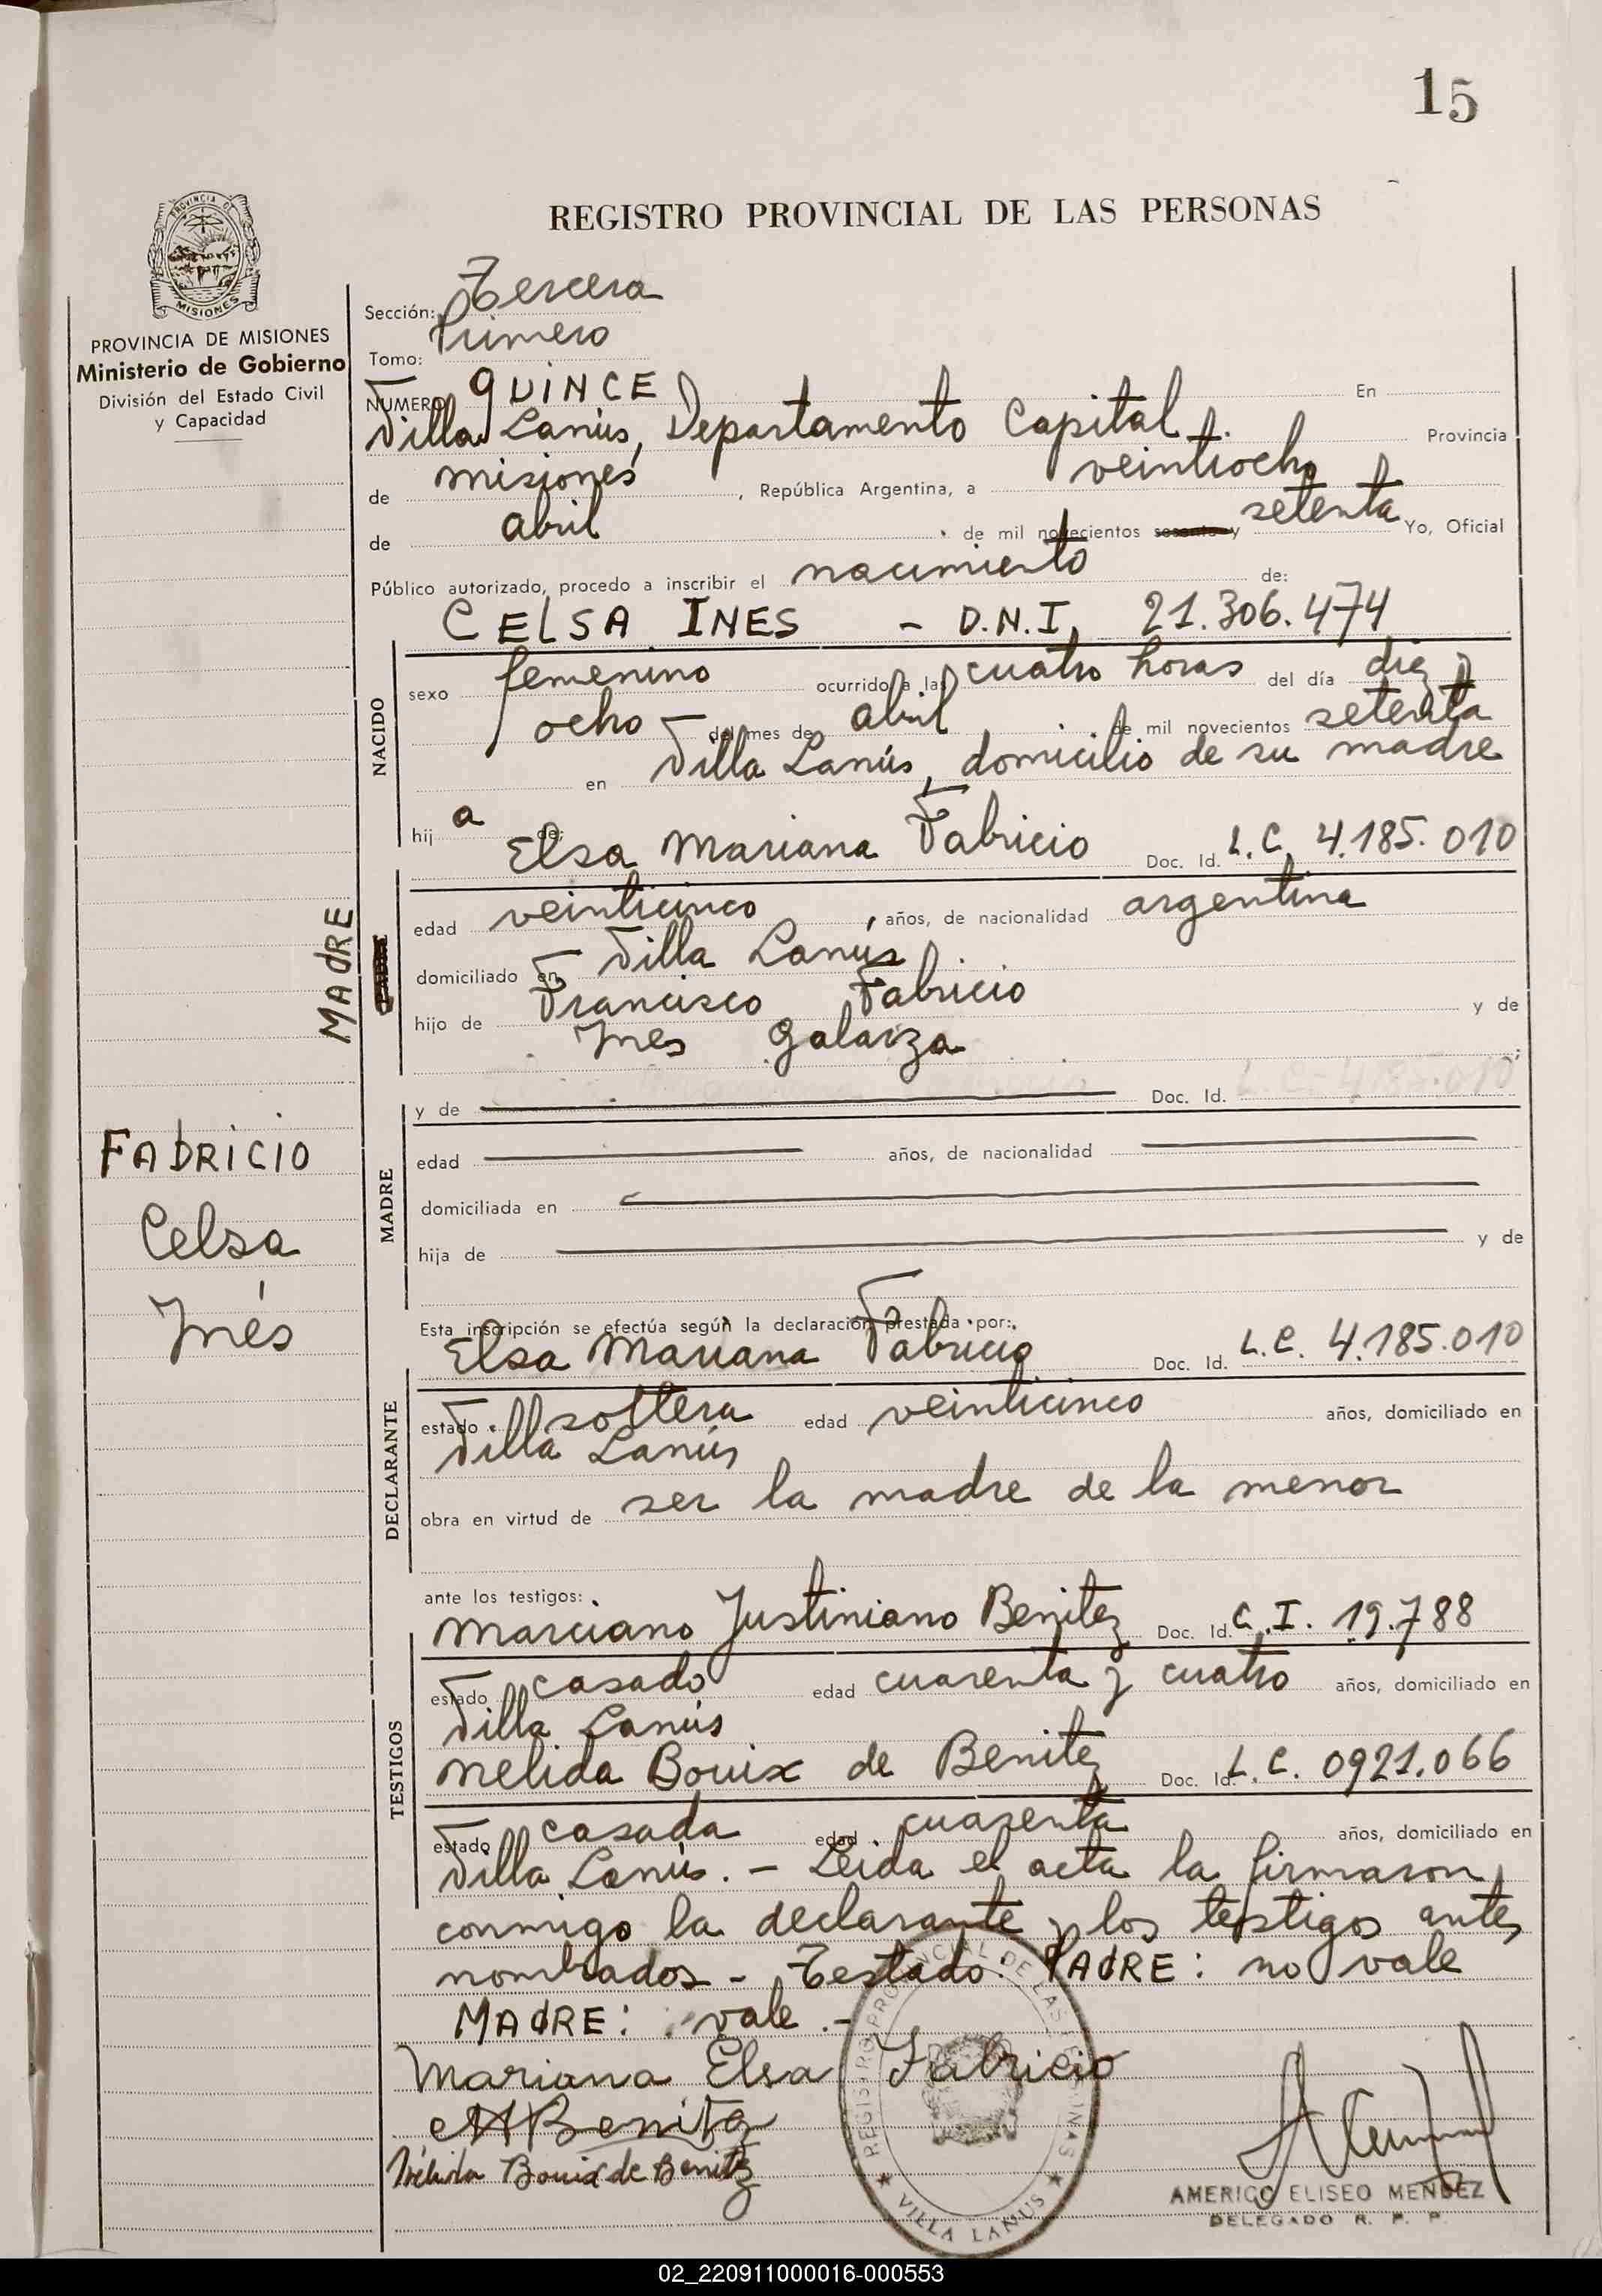 15
REGISTRO PROVINCIAL DE LAS PERSONAS
PROVINCIA DE
MISIONES
PROVINCIA DE MISIONES
Ministerio de Gobierno
División del Estado Civil
y Capacidad
Sección: Tercera
Tomo: Primero
NUMERO QUINCE En
Villa Lanús, Departamento Capital. Provincia
de misiones, República Argentina, a veintiocho
de abril de mil novecientos sesenta y setenta Yo, Oficial
Público autorizado, procedo a inscribir el nacimiento de:
CELSA INES - D.N.I. 21.306.474
NACIDO
sexo femenino ocurrido a las cuatro horas del día diez y
ocho del mes de abril de mil novecientos setenta
en Villa Lanús, domicilio de su madre
hij a de:
Elsa Mariana Fabricio Doc. Id. L.C. 4.185.010
MADRE
edad veinticinco, años, de nacionalidad argentina
domiciliado en Villa Lanús
hijo de Francisco Fabricio y de
Ines Galarza
y de Doc. Id.
MADRE
edad años, de nacionalidad
domiciliada en
hija de y de
FABRICIO
Celsa
Inés
Esta inscripción se efectúa según la declaración prestada por:
Elsa Mariana Fabricio Doc. Id. L.C. 4.185.010
DECLARANTE
estado soltera edad veinticinco años, domiciliado en
Villa Lanús
obra en virtud de ser la madre de la menor
ante los testigos:
Marciano Justiniano Benitez Doc. Id. C.I. 19.788
TESTIGOS
estado casado edad cuarenta y cuatro años, domiciliado en
Villa Lanús
Nelida Bouix de Benitez Doc. Id. L.C. 0921.066
estado casada edad cuarenta años, domiciliado en
Villa Lanús. - Leida el acta la firmaron
conmigo la declarante y los testigos antes
nombrados - Testado: PADRE: no vale
MADRE: vale.-
Mariana Elsa Fabricio
Benitez
Nélida Bouix de Benitez
REGISTRO PROVINCIAL DE LAS PERSONAS
VILLA LANUS
AMERICO ELISEO MENDEZ
DELEGADO R. P. P.
02_220911000016-000553